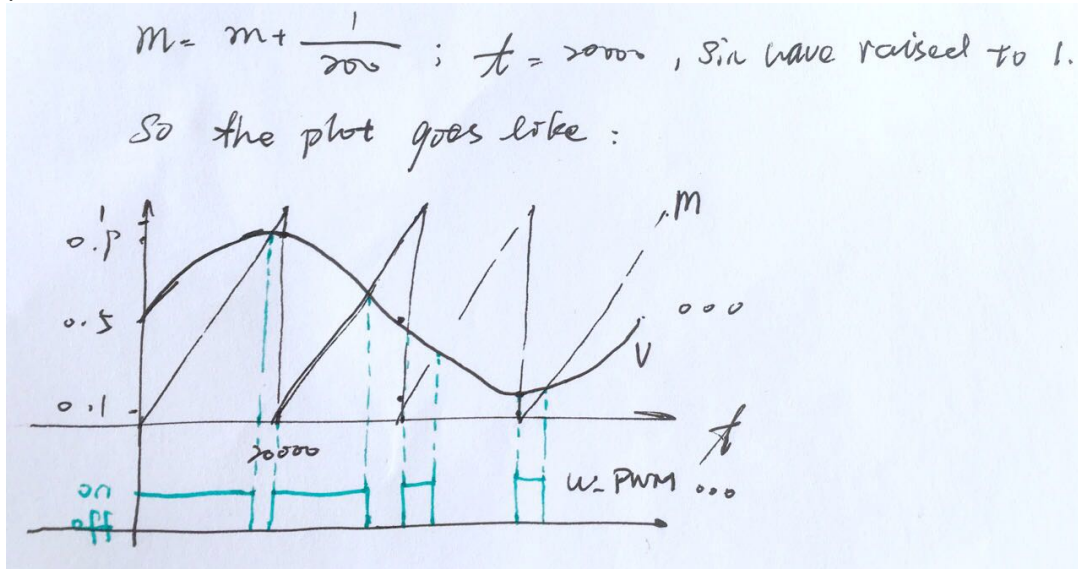 m = m + 1/200 ; t = 20000 , sin have raised to 1.
So the plot goes like :
1
0.9
m
0.5
...
V
0.1
t
20000
on
u_PWM ...
off